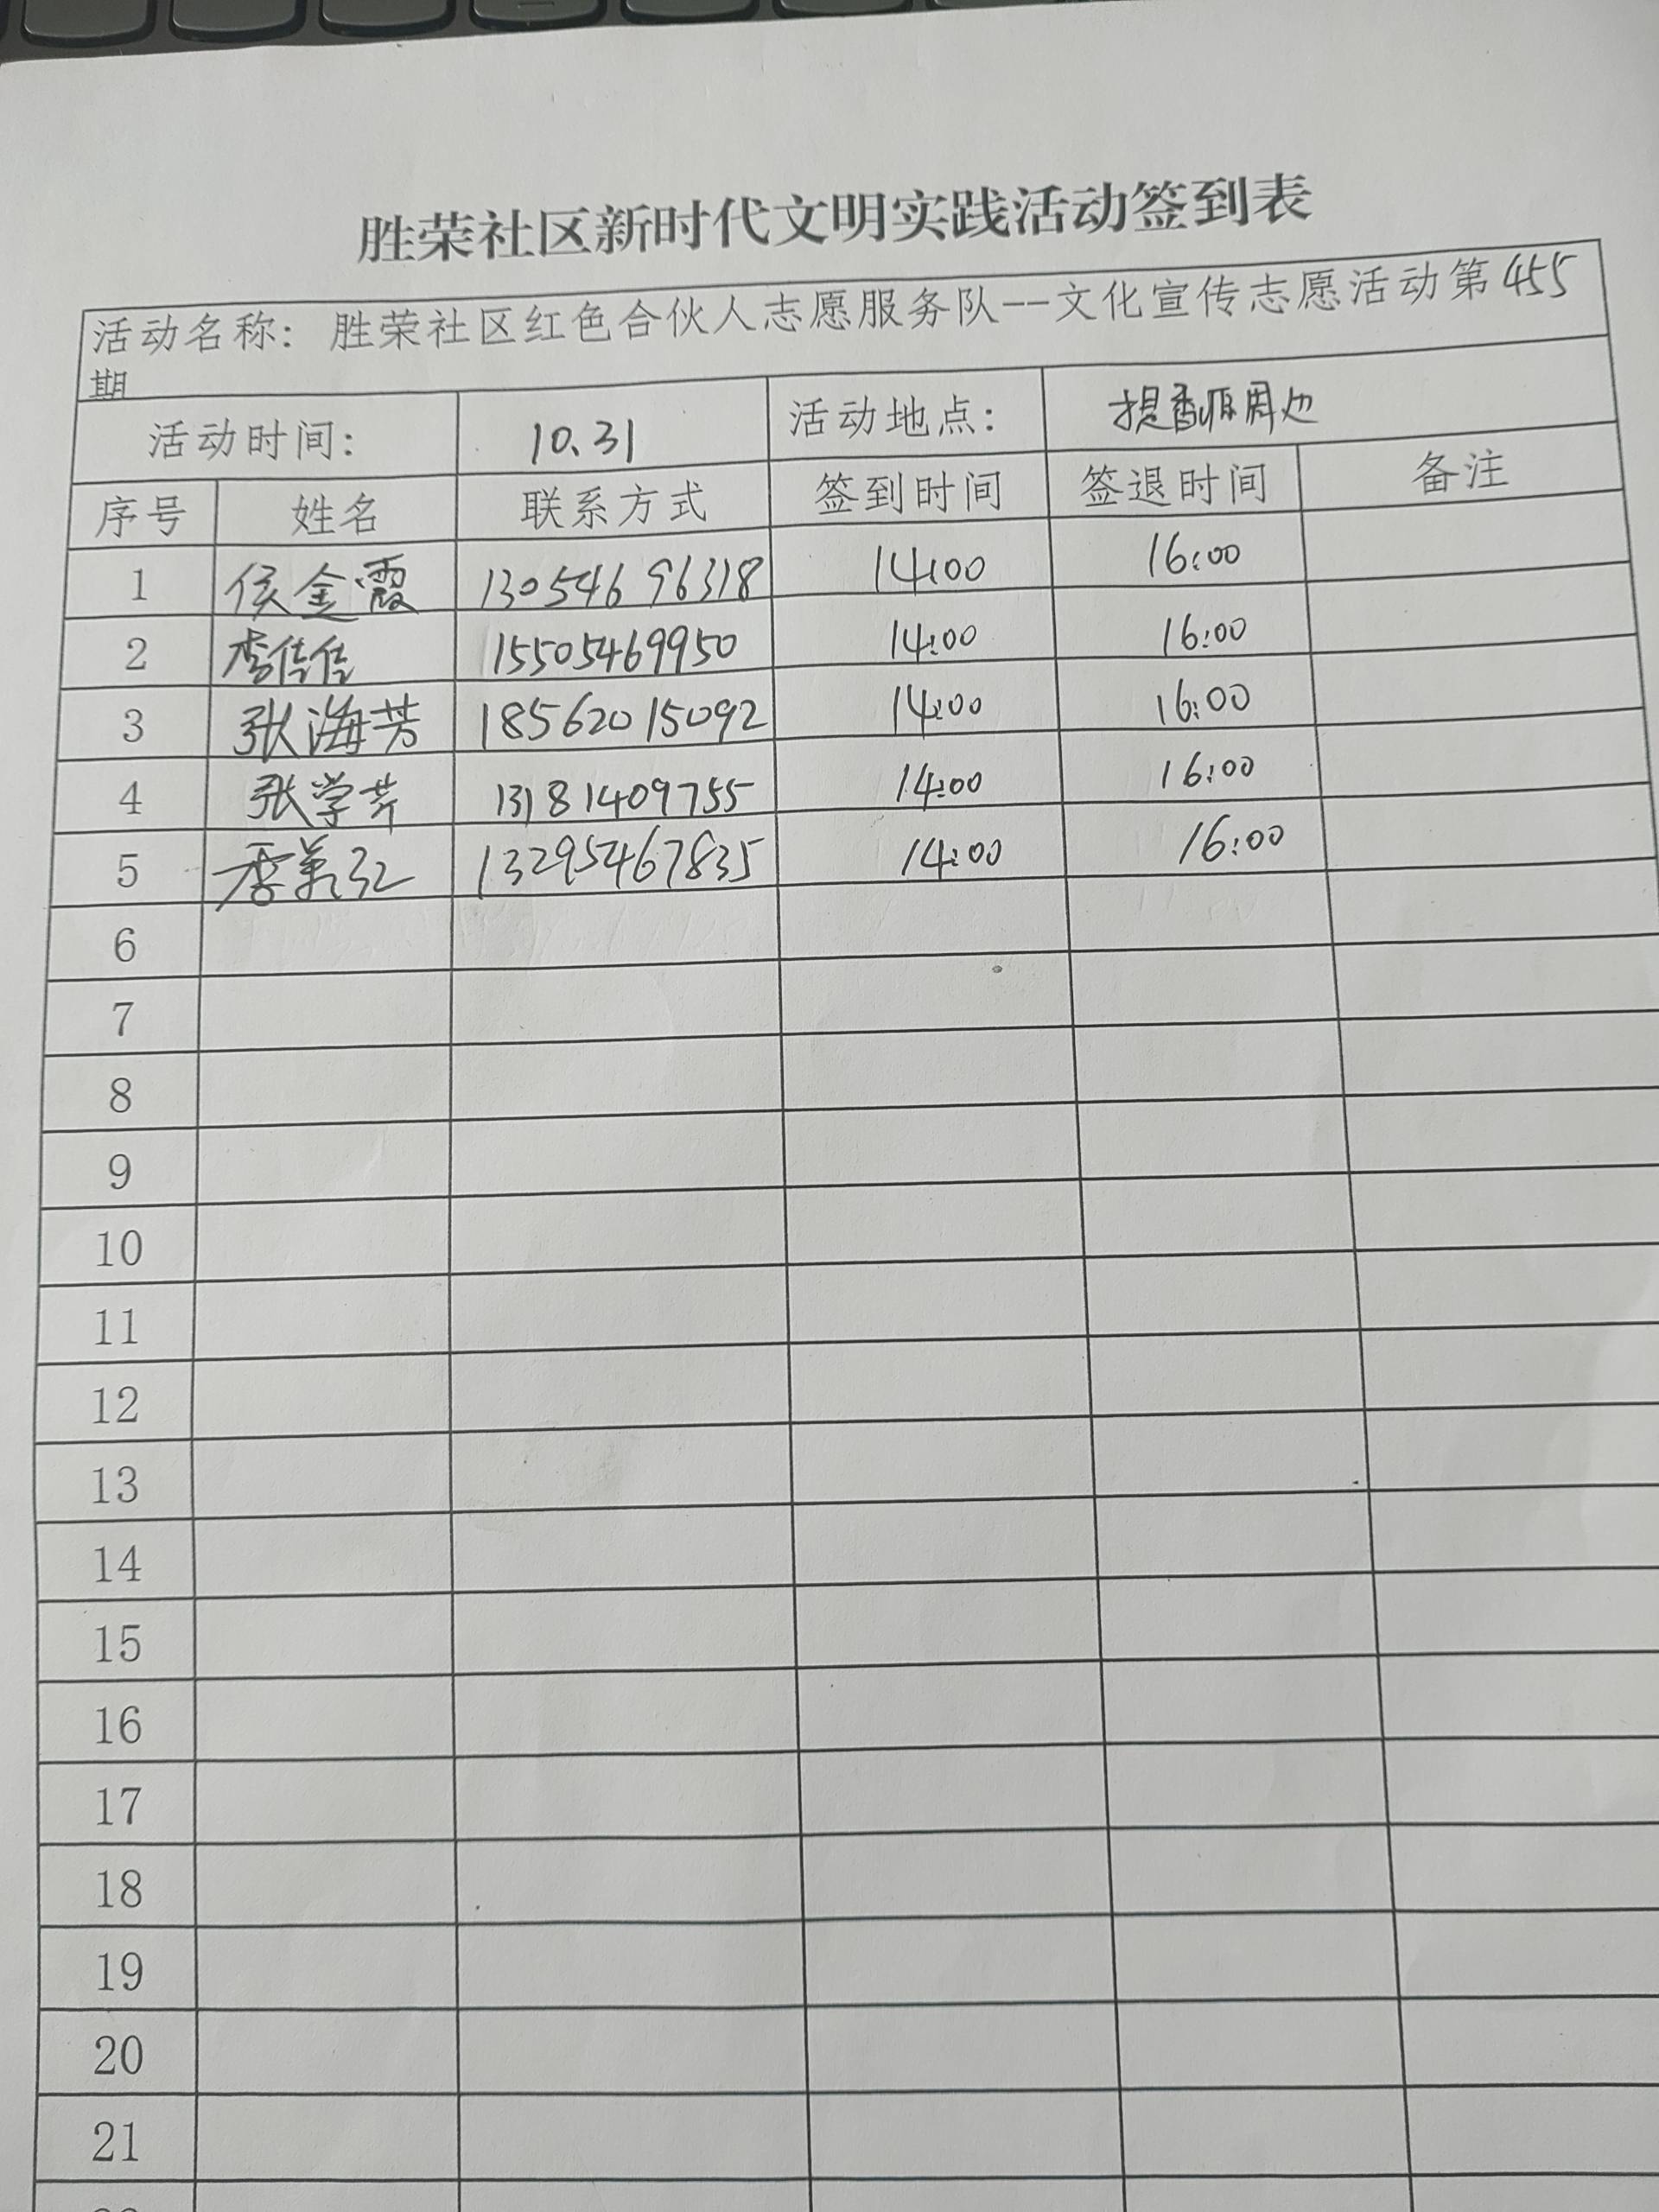 胜荣社区新时代文明实践活动签到表
活动名称：胜荣社区红色合伙人志愿服务队--文化宣传志愿活动第455
期
活动时间： 10.31 活动地点： 提香源周边
序号 姓名 联系方式 签到时间 签退时间 备注
1 侯金霞 13054696318 14:00 16:00
2 李传传 15505469950 14:00 16:00
3 张海芳 18562015092 14:00 16:00
4 张学芹 13181409755 14:00 16:00
5 13295467835 14:00 16:00
6
7
8
9
10
11
12
13
14
15
16
17
18
19
20
21